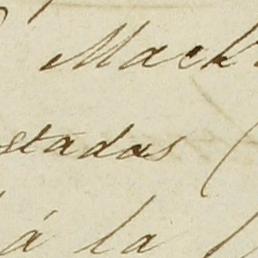 Mack
stadas (
á la